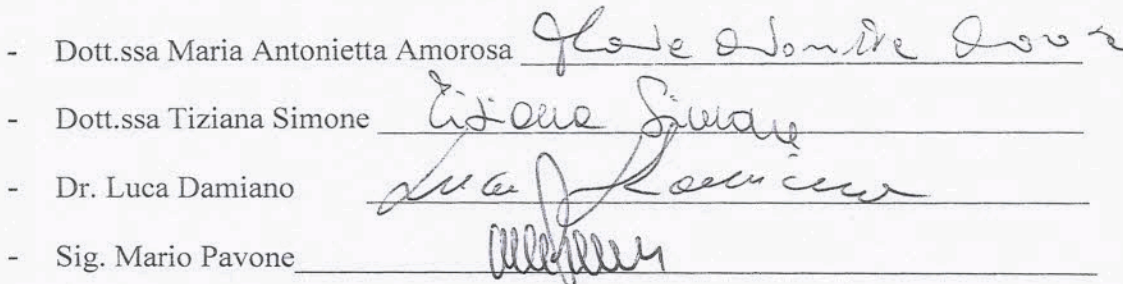 - Dott.ssa Maria Antonietta Amorosa
- Dott.ssa Tiziana Simone Tiziana Simone
- Dr. Luca Damiano Luca Damiano
- Sig. Mario Pavone